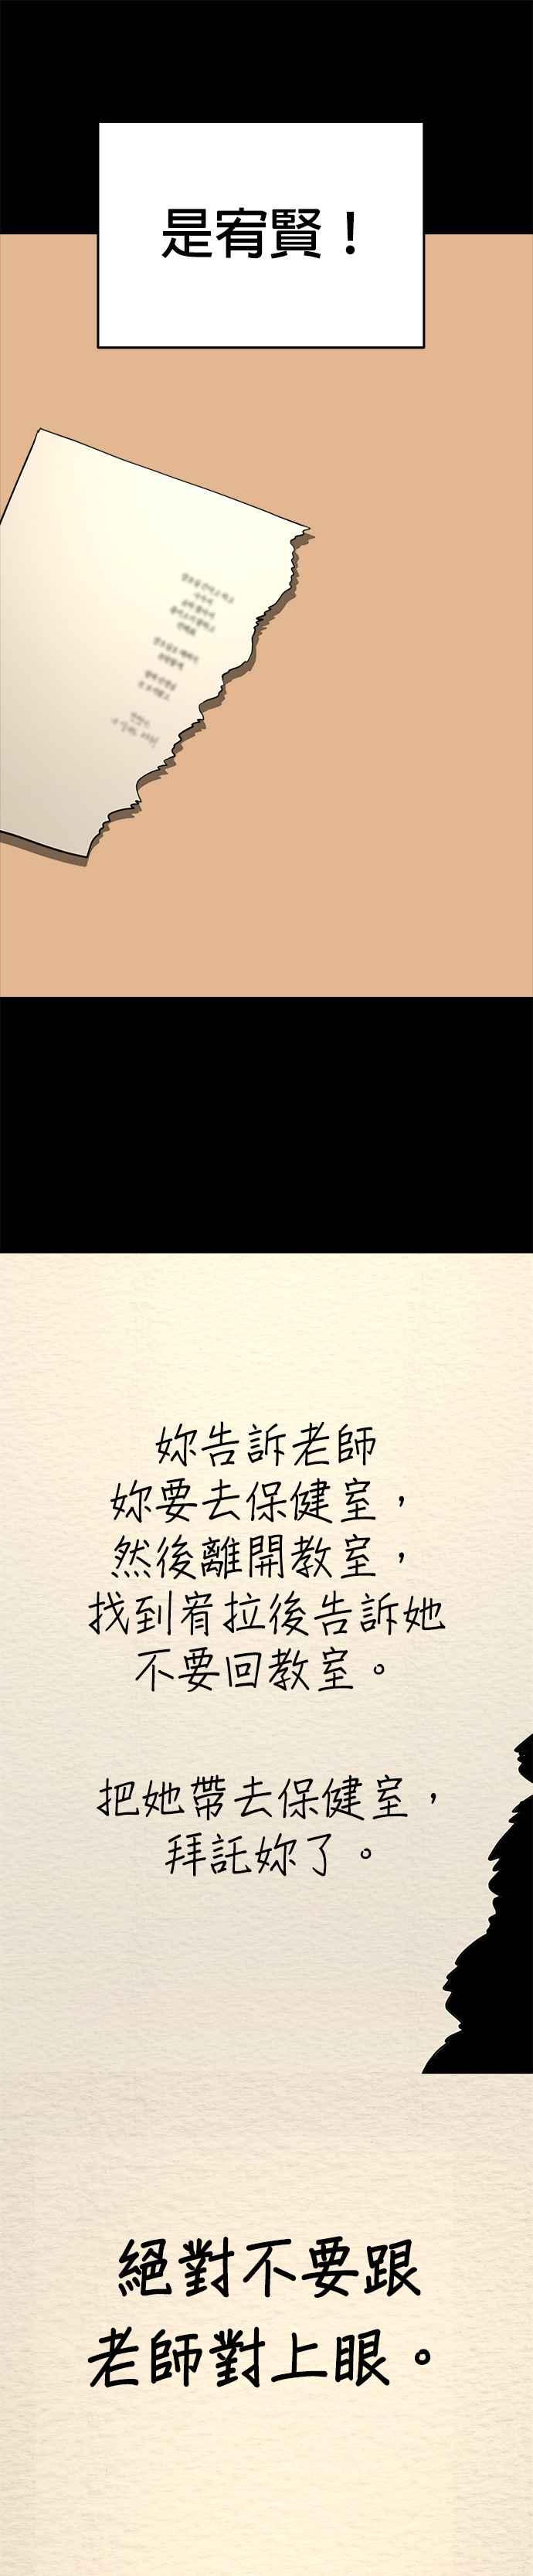 是宥賢！
妳告訴老師
妳要去保健室，
然後離開教室，
找到宥拉後告訴她
不要回教室。
把她帶去保健室，
拜託妳了。
絕對不要跟
老師對上眼。